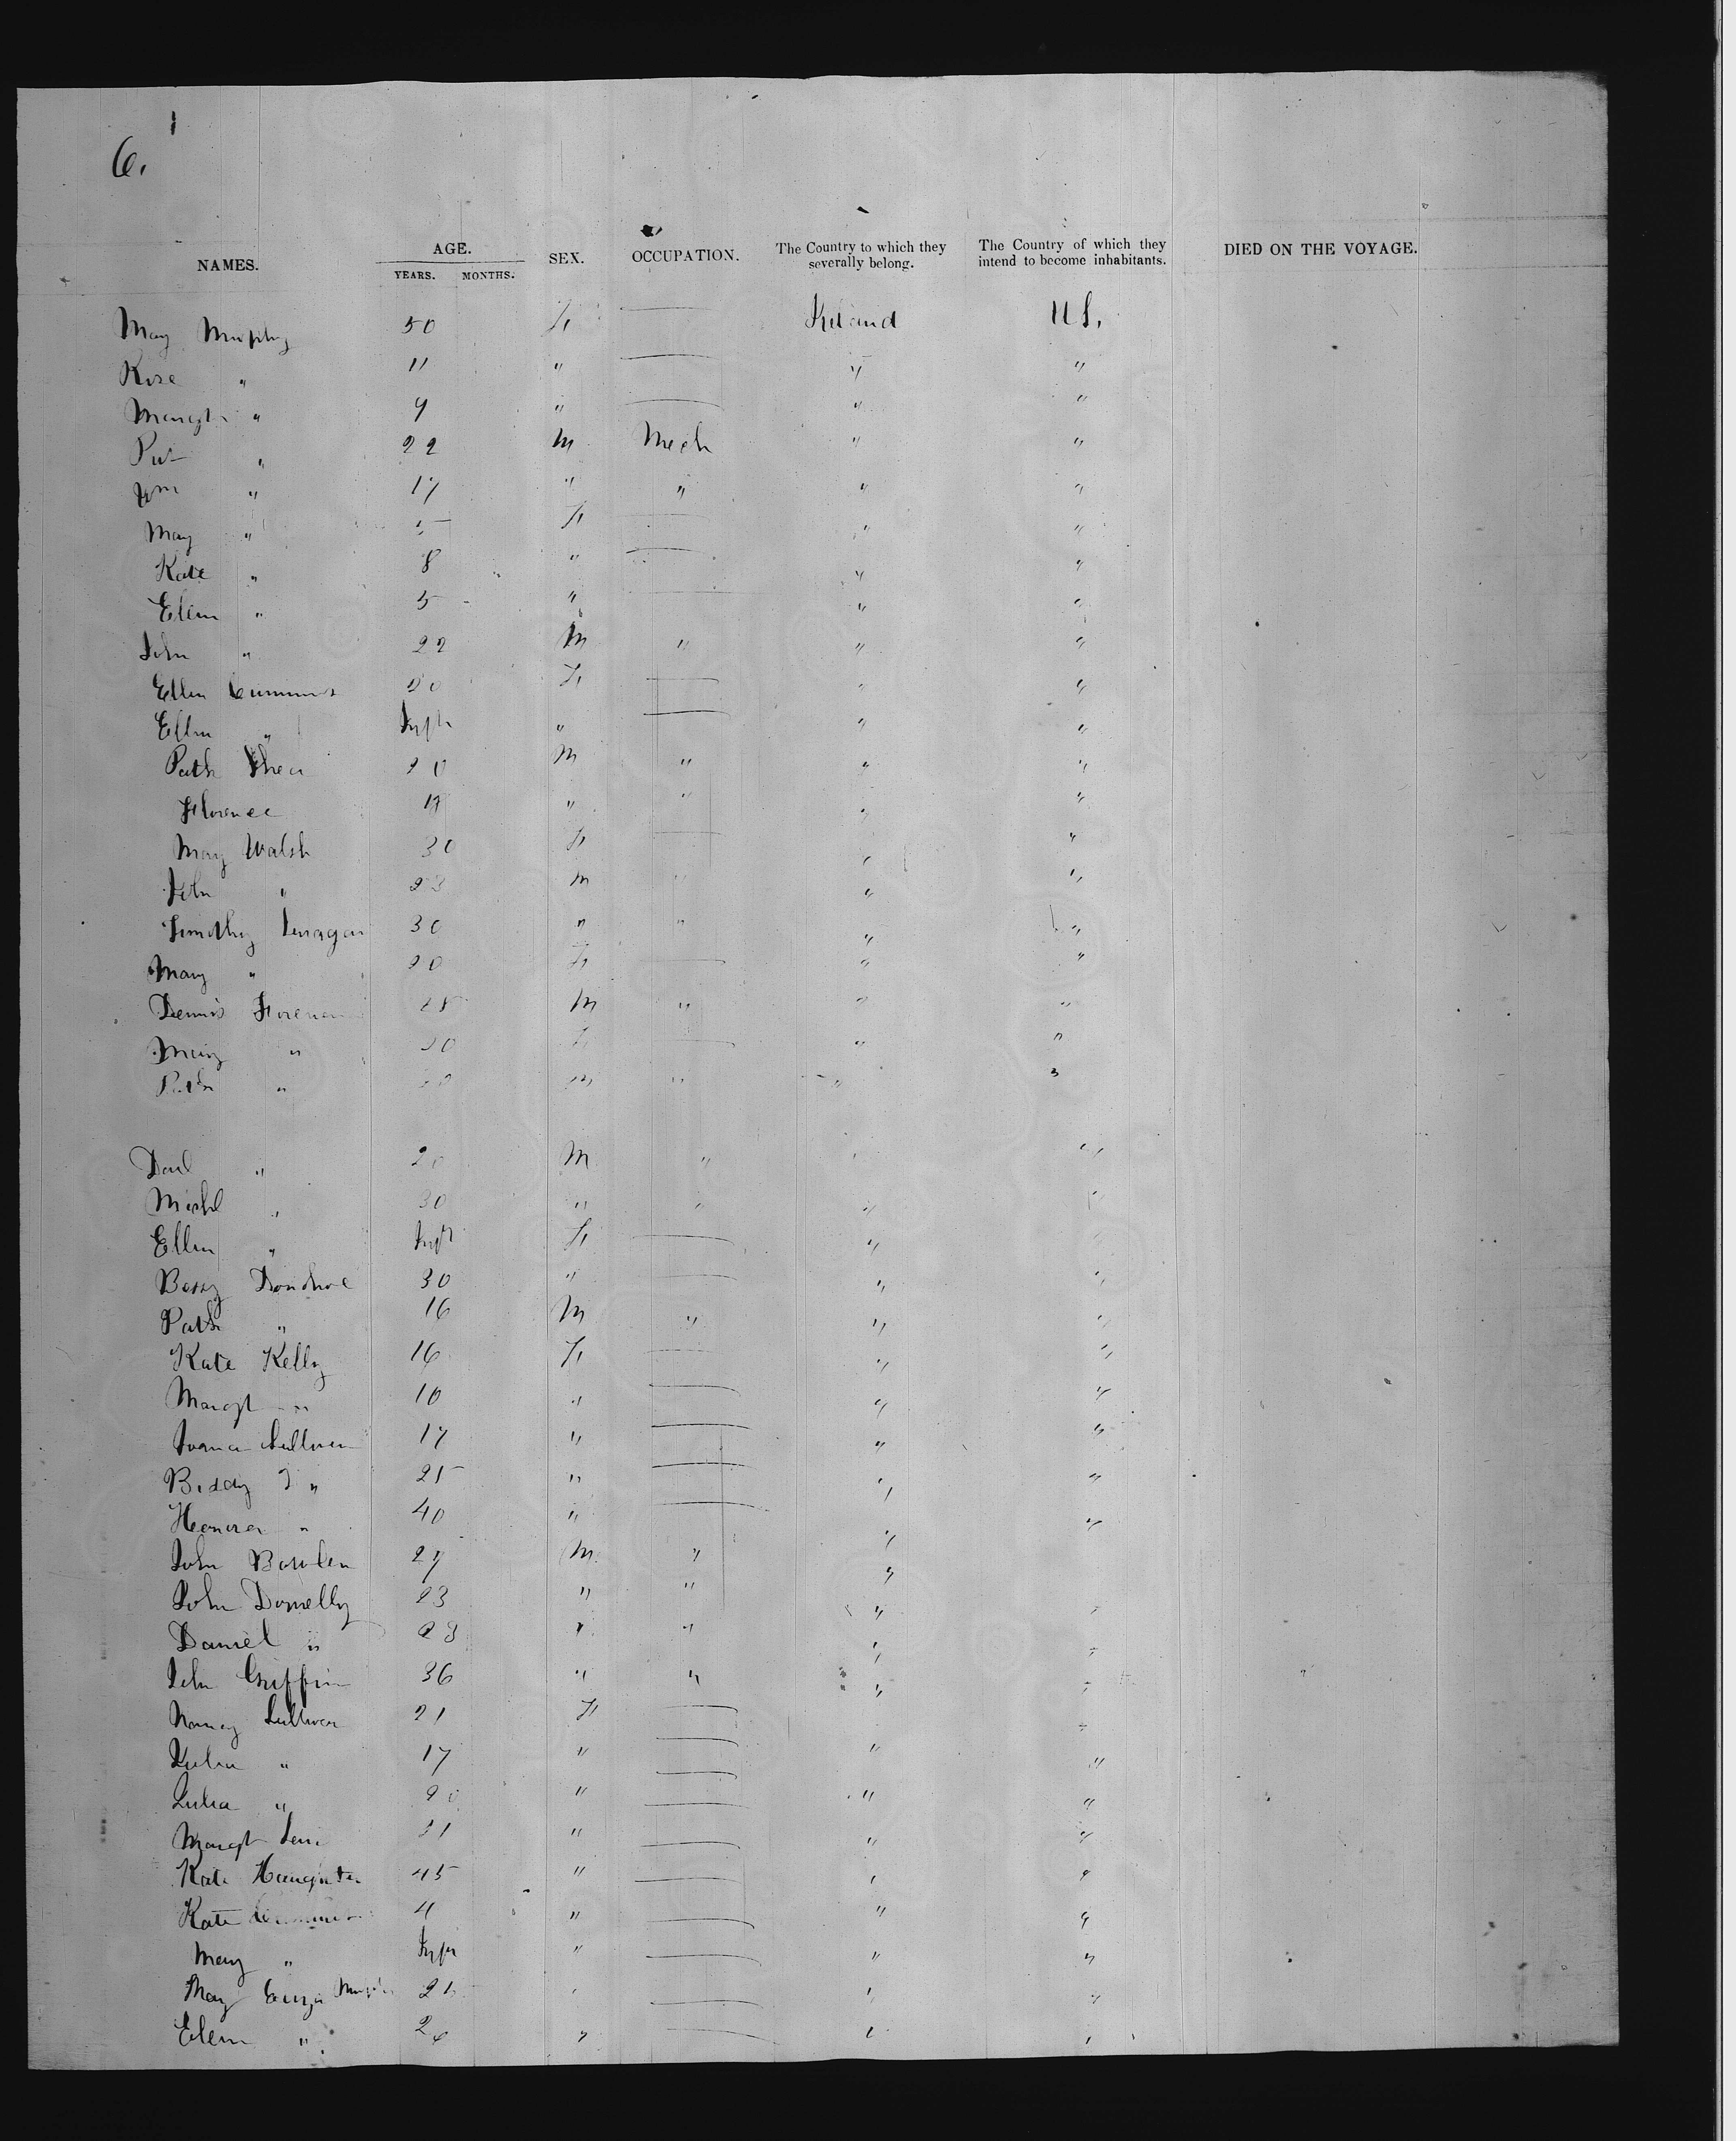 6.
NAMES. AGE. YEARS. MONTHS. SEX. OCCUPATION. The Country to which they severally belong. The Country of which they intend to become inhabitants. DIED ON THE VOYAGE.
May Murphy 50 F — Ireland U S.
Rose " 11 " — " "
Margt " 9 " — " "
Pat " 22 M Mech " "
" 17 " " " "
May " 5 F — " "
Kate " 8 " — " "
Ellen " 5 " — " "
John " 22 M " " "
Ellen Cummins F — " "
Ellen " Inft " — " "
Patk Shea 20 M " " "
Florence " " " "
May Walsh 30 F — " "
John " 23 M " " "
Timothy 30 " " " "
Mary " 20 F — " "
Dennis M " " "
Mary " F — " "
Patk " M " " "
Danl " 20 M " " "
Michl " 30 " " " "
Ellen " Inft F — " "
Bessy Donohoe 30 " — " "
Patk " 16 M " " "
Kate Kelly 16 F — " "
Margt " 10 " — " "
Sullivan 17 " — " "
Biddy " 25 " — " "
Honora " 40 " — " "
John Bowlen 27 M " " "
John Donnelly 23 " " " "
Daniel " 28 " " " "
John Griffin 36 " " " "
Nancy Sullivan 21 F — " "
Julia " 17 " — " "
Julia " 20 " — " "
Margt " — " "
Kate 45 " — " "
Kate Cummins 4 " — " "
Mary " Inft " — " "
May — " "
Ellen " " — " "